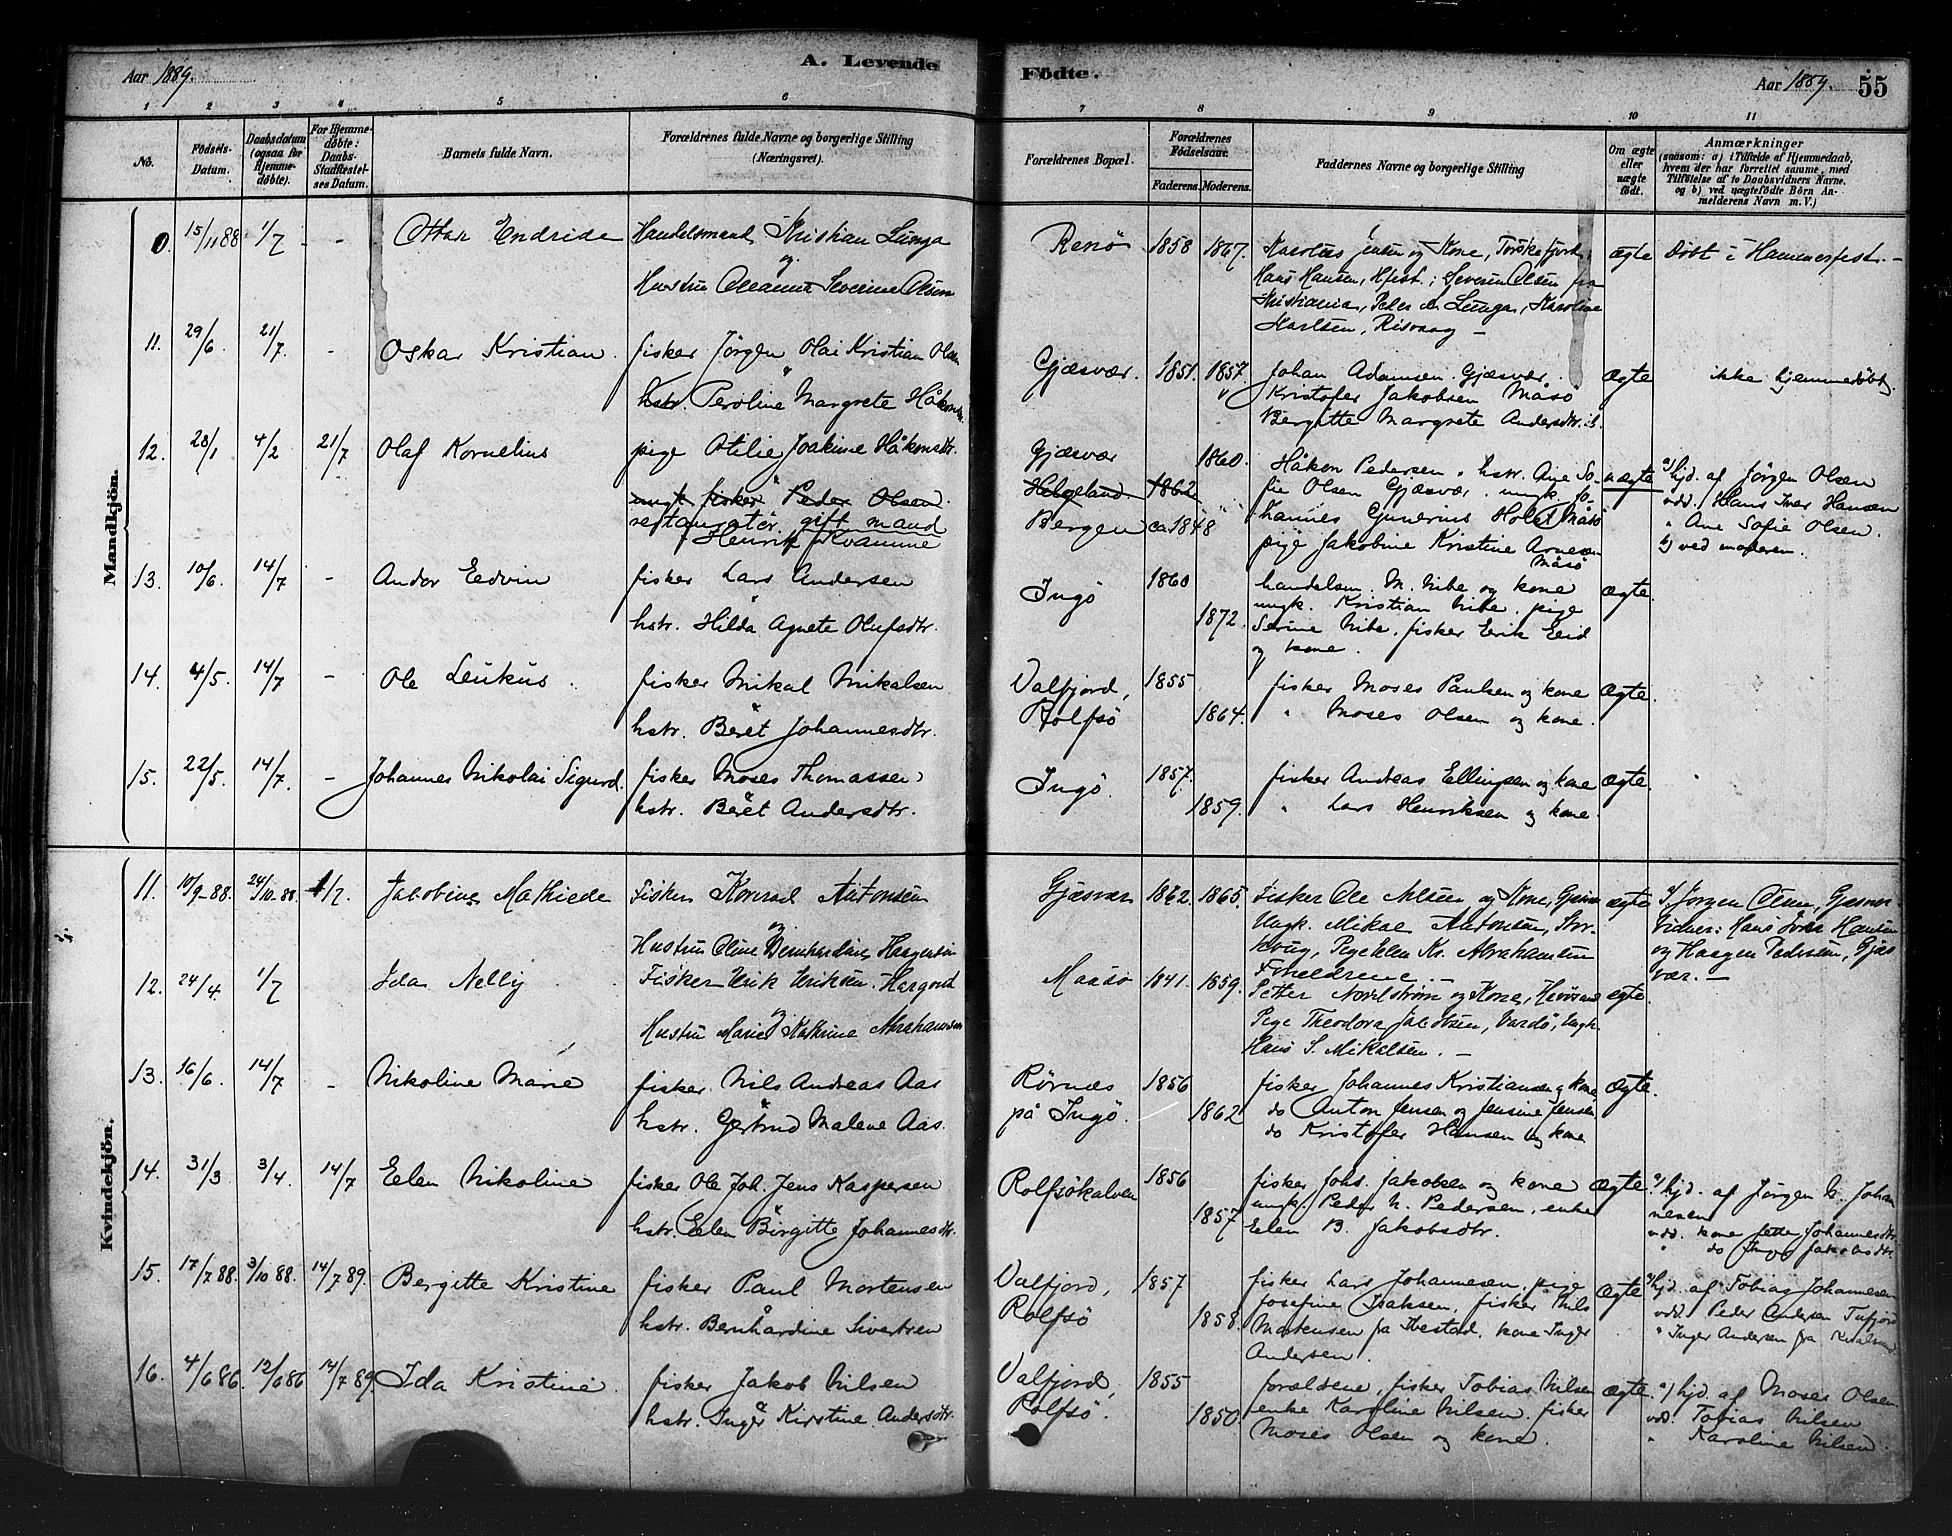 Aar 1889.
A. Levende
Fødte.
Aar 1889.
55
1 2 3 4 5 6 7 8 9 10 11
No.
Fødsels-Datum.
Daabsdatum (ogsaa for Hjemme-døbte).
For Hjemme-døbte: Daabs-Stadfæstel-ses Datum.
Barnets fulde Navn.
Forældrenes fulde Navne og borgerlige Stilling (Næringsvei).
Forældrenes Bopæl.
Forældrenes Fødselsaar.
Faderens. Moderens.
Faddernes Navne og borgerlige Stilling
Om ægte eller uægte født.
Anmærkninger
(saasom: a) i Tilfælde af Hjemmedaab, hvem der har forrettet samme, med Tilføielse af to Daabsvidners Navne, og b) ved uægtefødte Børn An-melderens Navn m. V.)
Mandkjön.
0. 15/11 88 1/7 - - Ottar Endride
Handelsmand Kristian Lunga
og
Hustru Oleanna Severine Olsen
Renö 1858 1867.
Karolus Jensen og Kone, Torskefjord,
Hans Hansen, Hfest.; Severin Olsen fra
Kristiania, Peder Lunga, Karoline
Karlsen, Risvaag -
ægte Döbt i Hammerfest. -
11. 29/6. 21/7. - Oskar Kristian.
fisker Jörgen Olai Kristian Olsen
hstr. Peroline Margrete Håkons
Gjæsvær. 1851. 1857.
Johan Adamsen. Gjæsvær.
Kristofer Jakobsen Måsö
Bergitte Margrete Andersdtr.
ægte ikke hjemmedöbt.
12. 28/1 4/2 21/7 Olaf Kornelius
pige Otilie Joakime Håkonsdtr.
ungk. fisker Peder Olsen.
restauratör, gift mand
Henrik Kvamme
Gjæsvær 1860.
Helgeland. 1862
Bergen ca 1848
Håkon Pedersen. hstr. Ane So-
fie Olsen Gjæsvær. ungk. Jo-
hannes Gunerius Holst Måsö
pige Jakobine Kristine Arnesen
Måsö
uægte
a) hjd. af Jörgen Olsen
vdd. Hans Iver Hansen
" Ane Sofie Olsen.
b) ved moderen.
13. 10/6. 14/7 - Andor Edvin
fisker Lars Andersen
hstr. Hilda Agnete Olufsdtr.
Ingö 1860 1872.
handelsm. M. Nibe og kone
ungk. Kristian Nibe. pige
Serine Nibe. fisker Erik Eid
og kone.
ægte.
14. 4/5. 14/7 - Ole Leukus.
fisker Mikal Mikalsen
hstr. Beret Johannesdtr.
Valfjord, Rolfsö 1855 1864.
fisker Moses Paulsen og kone
" Moses Olsen og kone.
ægte.
15. 22/5. 14/7. - Johannes Nikolai Sigurd.
fisker Moses Thomassen
hstr. Beret Andersdtr.
Ingö. 1857. 1859.
fisker Andreas Ellingsen og kone
" Lars Henriksen og kone.
ægte.
Kvindekjön.
11. 10/9-88. 24/10-88. 1/7. Jakobine Mathilde
Fisker Konrad Antonsen
og
Hustru Oline Bernhardine Haagensen
Gjæsvær 1862. 1865.
Fisker Ole Nilsen og Kone, Gjæsvær
Ungk. Mikal Antonsen, Stor-
Pige Elen Kr. Abrahamsen
Forældrene
ægte
J. Jörgen Olsen, Gjæsvær
Vidner: Hans Iver Hansen
og Haagen Pedersen, Gjæs
vær. -
12. 24/4. 1/7 Ida Nelly
Fisker Erik Eriksen. Hargord
og
Hustru Marie Kathrine Abrahamsen
Maasö 1841. 1859.
Petter Nordström og Kone,
Pige Theodora Jakobsen, Vardö, Ungk.
Hans S. Mikalsen. -
ægte.
13. 16/6. 14/7 - Nikoline Marie
fisker. Nils Andreas Aas
hstr. Gertrud Malene Aas.
Rörnæs på Ingö. 1856 1862
fisker Johannes Kristiansen og kone
do Anton Jensen og Jensine Jensen
do Kristofer Hansen og kone
ægte.
14. 31/3 3/4. 14/7 Elen Nikoline
fisker Ole Joh. Jens Kaspersen
hstr. Elen Birgitte Johannesdtr.
Rolfsökalven 1856 1857
fisker Johs. Jakobsen og kone
ungk. Peder N. Pedersen, enke
Elen B. Jakobsdtr.
ægte.
a) hjd. af Jörgen N. Johan
nesen
vdd. kone Jette Johannesdtr
" do Inger Jakobsdtr
15. 17/7 88. 3/10 88. 14/7 89. Bergitte Kristine
fisker Paul Mortensen
hstr. Bernhardine Sivertsen
Valfjord, Rolfsö 1857 1858.
fisker Lars Johannesen, pige
Josefine Isaksen, fisker Nils
Mortensen fra Ibestad, kone Inger
Andersen.
ægte
a) hjd. af Tobias Johannesen
vdd. Peder Andersen Tufjord
" Inger Andersen fra Kvalsund.
16. 4/6 86. 12/6 86 14/7 89. Ida Kristine.
fisker Jakob Nilsen
hstr. Inger Kirstine Andersdtr.
Valfjord, Rolfsö. 1855 1850
forældrene, fisker Tobias Nilsen
enke Karoline Nilsen. fisker
Moses Olsen og kone.
ægte.
a) hjd. af Moses Olsen
vdd. Tobias Nilsen
" Karoline Nilsen.